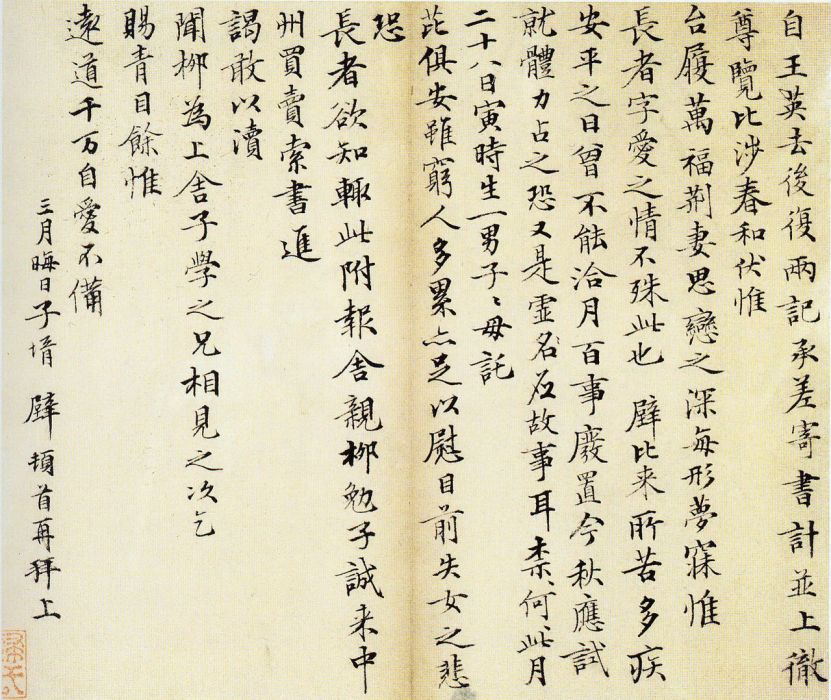 自王英去後復兩記承差寄書計並上徹
尊覽比涉春和伏惟
台履萬福荊妻思戀之深每形夢寐惟
長者字愛之情不殊此也 璧比来所苦多疾
安平之日曾不能洽月百事廢置今秋應試
就體力占之恐又是虛名應故事耳柰何柰何此月
二十八日寅時生一男子子母託
芘俱安雖窮人多累亦足以慰目前失女之悲
恐
長者欲知輙此附報舍親柳勉子誠来中
州買賣索書進
謁敢以瀆
聞柳為上舍子學之兄相見之次乞
賜青目餘惟
遠道千万自愛不備
三月晦日子壻 璧 頓首再拜上